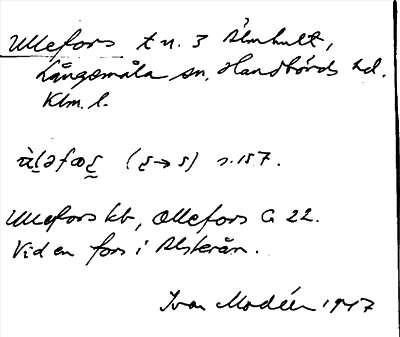 Ullefors t u. 3 Älmhult,
Långasmåla sn, Handbörds hd.
Klm. l.
ùl̥əfœʂ (ʂ→s) s. 157.
Ullefors kb, Ollefors G 22.
Vid en fors i Alsterån.
Ivar Modéer 1947